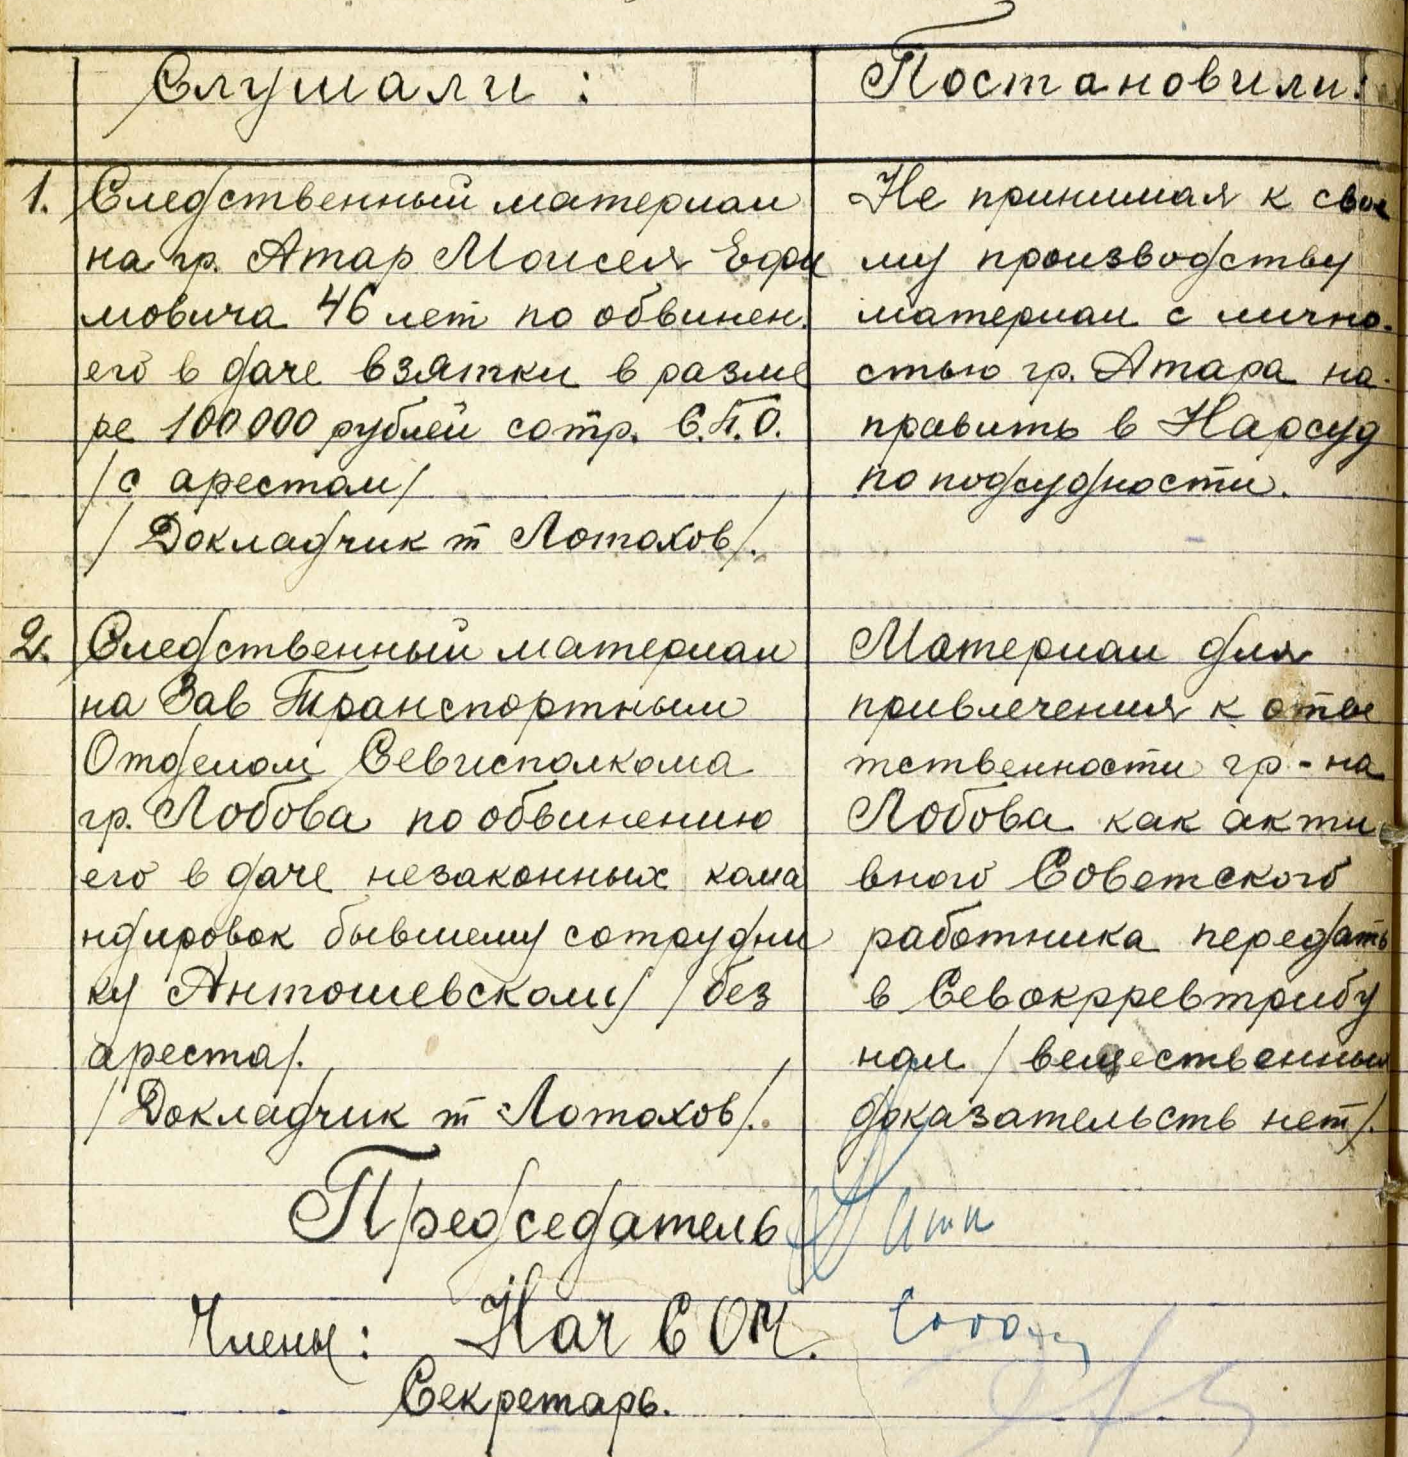 Слушали:
Постановили:
1. Следственный материал
на гр. Атар Моисея Ефи
мовича 46 лет по обвинен.
его в даче взятки в разме
ре 100000 рублей сотр. С.П.О.
/с арестом/
/Докладчик т Лотохов/.
Не принимая к свое
му производству
материал с лично-
стью гр. Атара на-
править в Нарсуд
по подсудности.
2. Следственный материал
на Зав Транспортным
Отделом Севисполкома
гр. Лобова по обвинению
его в даче незаконных кома
ндировок бывшему сотрудни
ку Антошевскому /без
ареста/.
/Докладчик т Лотохов/.
Материал для
привлечения к отве
тственности гр-на
Лобова как акти
вного Советского
работника передать
в Севокрревтрибу
нал /вещественных
доказательств нет/.
Председатель
Члены: Нач СОЧ.
Секретарь.